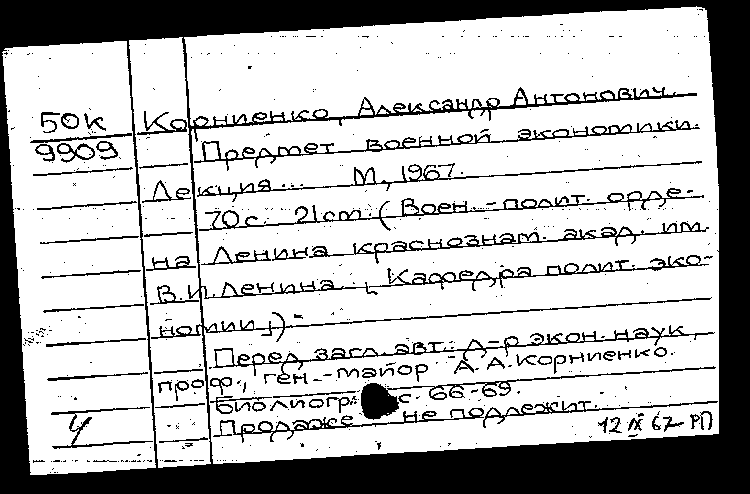 50К Корниенко, Александр Антонович.
9909 Предмет военной экономики.
Лекция... М., 1967.
70 с. 21 cm. (Воен.-полит. орде-
на Ленина краснознам. акад. им.
В.И. Ленина. Кафедра полит. эко-
номии).-
Перед загл. авт.: д-р экон. наук,
проф., ген.-майор А.А. Корниенко.
Библиогр. с. 66-69.
Ч Продаже не подлежит.
12 IX 67 РП